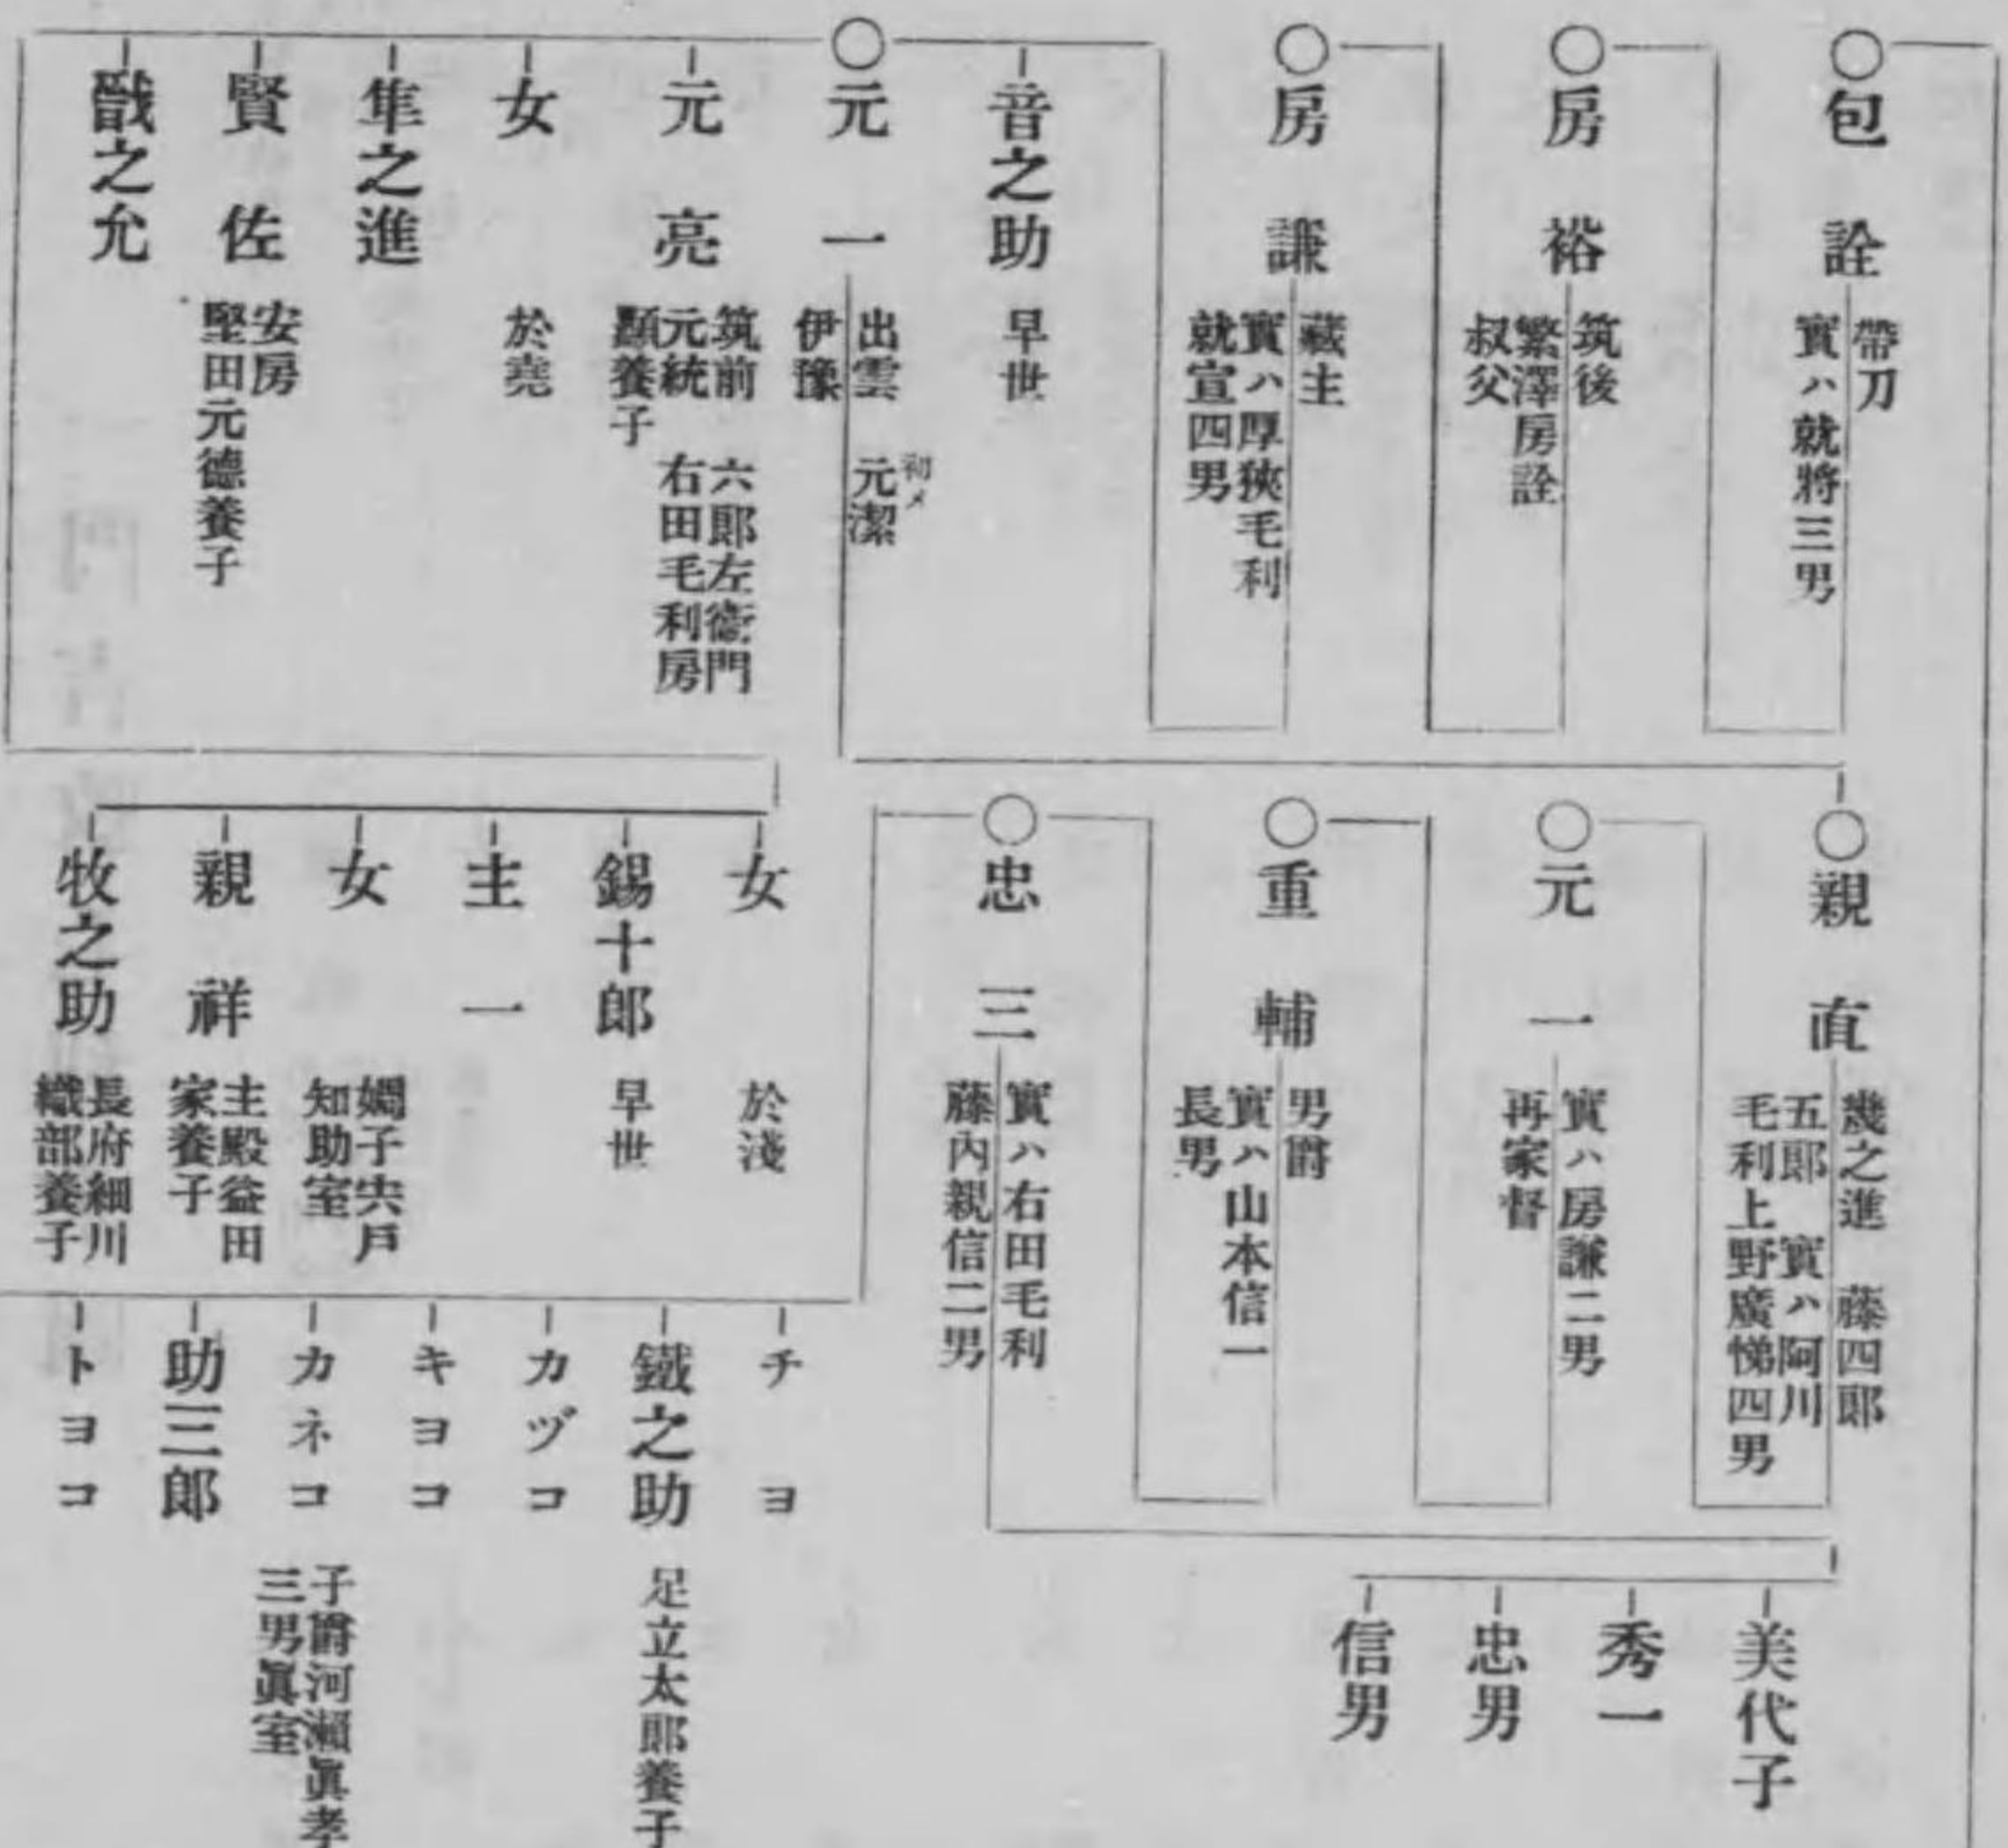 ○包詮
帶刀
實ハ就將三男
○房裕
筑後
繁澤房詮
叔父
○房謙
藏主
實ハ厚狹毛利
就宣四男
音之助
早世
○元一
出雲 初メ元潔
伊豫
元亮
筑前 六郎左衞門
元統 右田毛利房
顯養子
女
於堯
隼之進
賢佐
安房
堅田元德養子
戩之允
○親直
幾之進 藤四郎
五郎 實ハ阿川
毛利上野廣悌四男
○元一
實ハ房謙二男
再家督
○重輔
男爵
實ハ山本信一
長男
○忠三
實ハ右田毛利
藤內親信二男
女
於淺
錫十郎
早世
主一
女
嫺子宍戶
知助室
親祥
主殿益田
家養子
牧之助
長府細川
織部養子
美代子
秀一
忠男
信男
チヨ
鐵之助
足立太郎養子
カヅコ
キヨコ
カネコ
子爵河瀨眞孝
三男眞室
助三郎
トヨコ